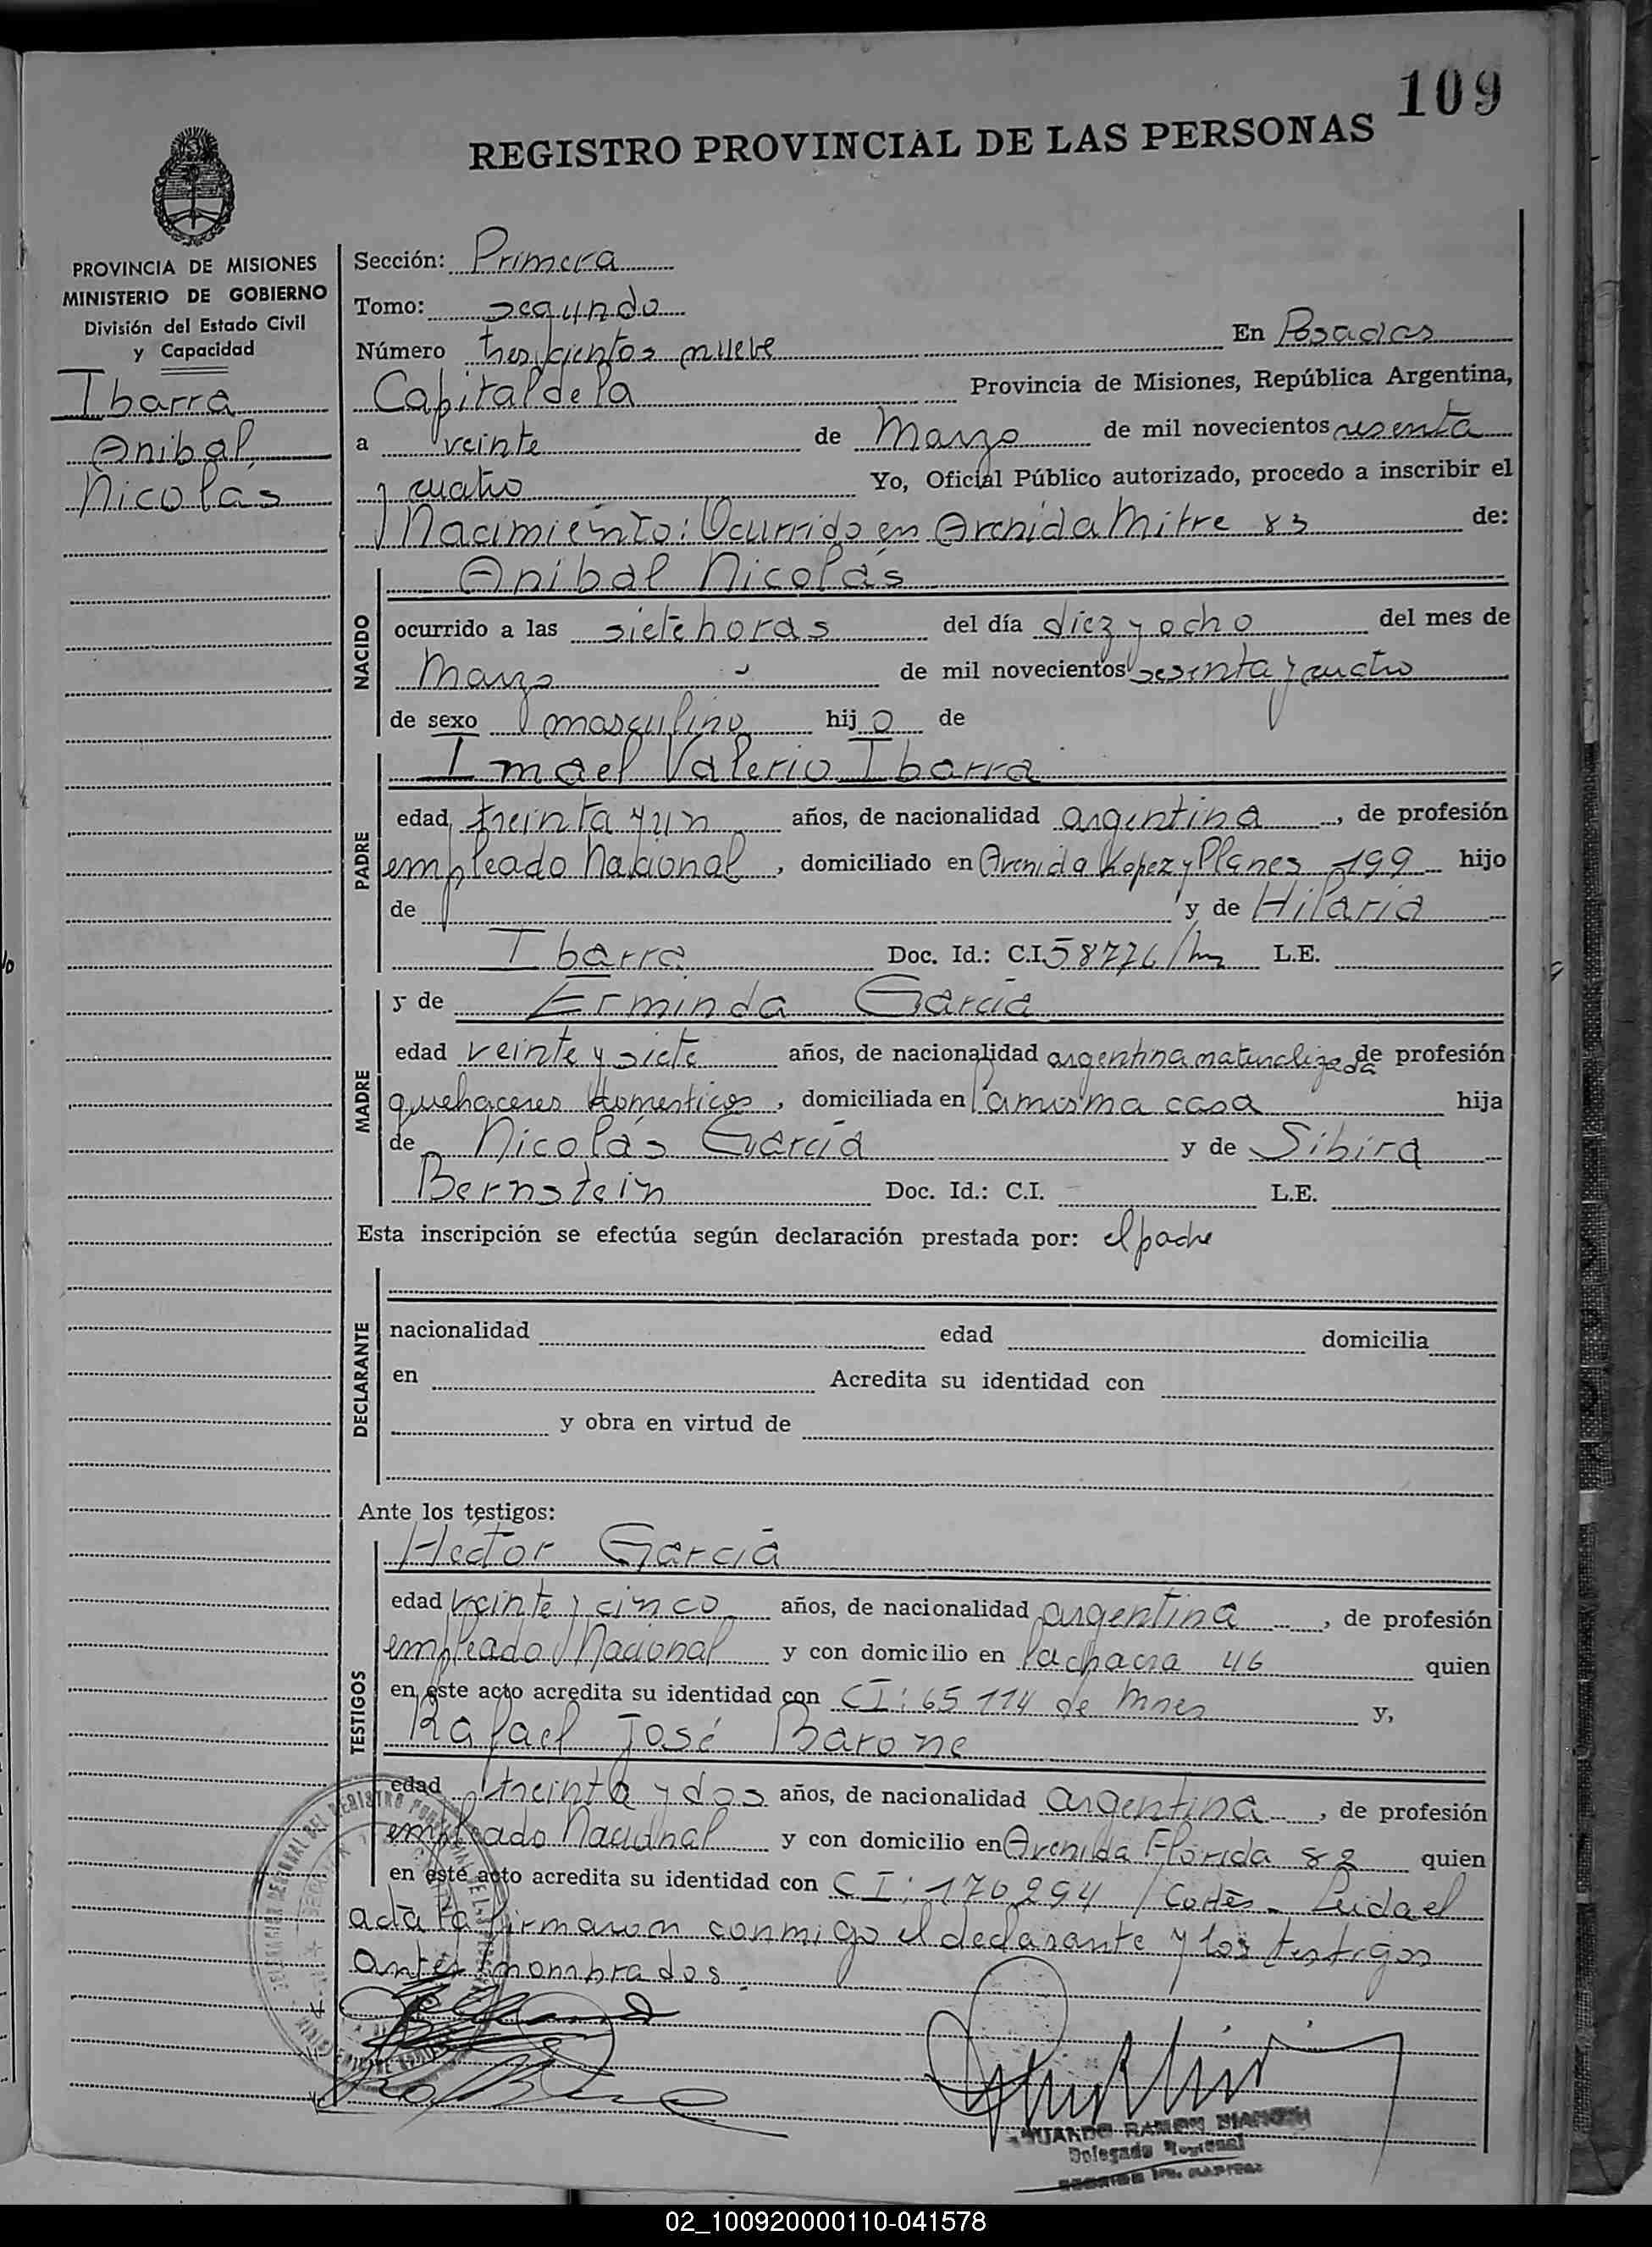 109
REGISTRO PROVINCIAL DE LAS PERSONAS
PROVINCIA DE MISIONES
MINISTERIO DE GOBIERNO
División del Estado Civil
y Capacidad
Ibarra
Anibal
Nicolas
Sección: Primera
Tomo: segundo
Número trescientos nueve En Posadas
Capital de la Provincia de Misiones, República Argentina,
a veinte de Marzo de mil novecientos sesenta
y cuatro Yo, Oficial Público autorizado, procedo a inscribir el
Nacimiento: Ocurrido en Avenida Mitre 83 de:
NACIDO
Anibal Nicolás
ocurrido a las siete horas del día diez y ocho del mes de
Marzo de mil novecientos sesenta y cuatro
de sexo masculino hijo de
PADRE
Imael Valerio Ibarra
edad treinta y un años, de nacionalidad argentina, de profesión
empleado Nacional, domiciliado en Avenida Lopez y Planes 199 hijo
de y de Hilaria
Ibarra Doc. Id.: C.I. 58776/ L.E.
MADRE
y de Erminda García
edad veinte y siete años, de nacionalidad argentina naturalizada de profesión
quehaceres domesticos, domiciliada en la misma casa hija
de Nicolás García y de Sibira
Bernstein Doc. Id.: C.I. L.E.
Esta inscripción se efectúa según declaración prestada por: el padre
DECLARANTE
nacionalidad edad domicilia
en Acredita su identidad con
y obra en virtud de
Ante los testigos:
TESTIGOS
Hector García
edad veinte y cinco años, de nacionalidad argentina, de profesión
empleado Nacional y con domicilio en la chacra 46 quien
en este acto acredita su identidad con CI: 65114 de Mnes y,
Rafael José Barone
edad treinta y dos años, de nacionalidad argentina, de profesión
empleado Nacional y con domicilio en Avenida Florida 82 quien
en este acto acredita su identidad con CI: 170294 / Leida el
acta la firmaron conmigo el declarante y los testigos
antes nombrados
RAMON
Delegado Regional
02_100920000110-041578